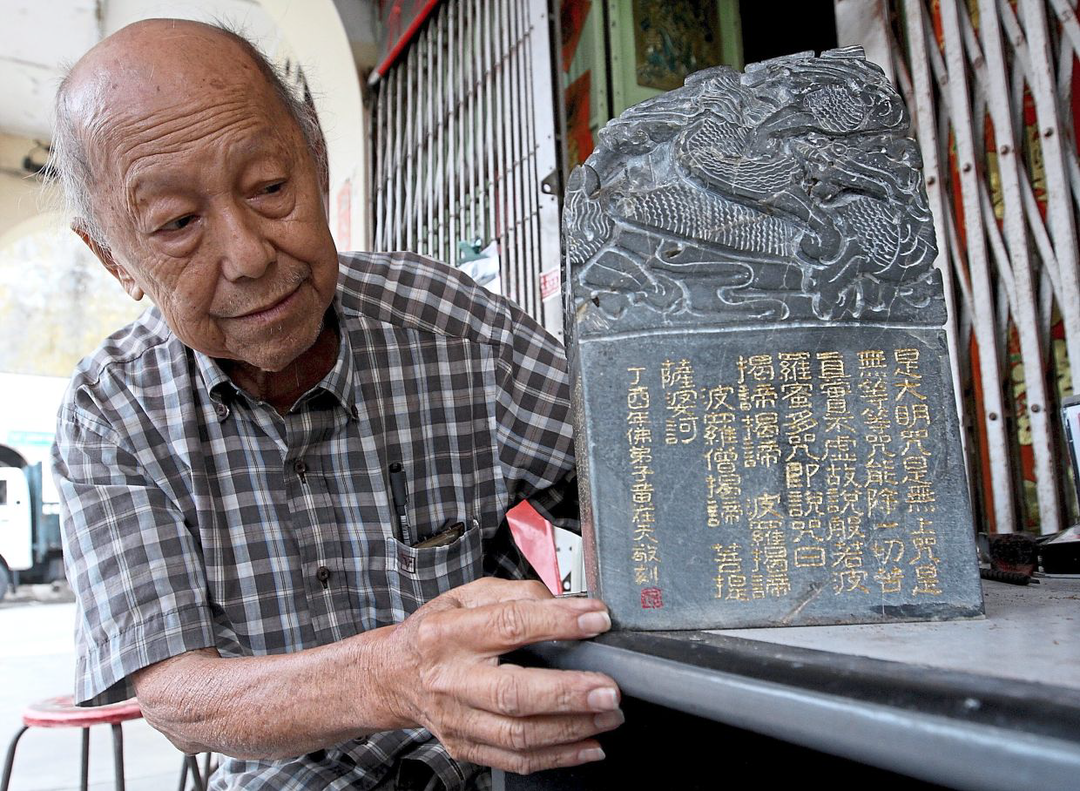 是大明咒是無上咒是
無等等咒能除一切苦
真實不虛故說般若波
羅蜜多咒即說咒曰
揭諦揭諦 波羅揭諦
波羅僧揭諦 菩提
薩婆訶
丁酉年佛弟子黃在天敬刻